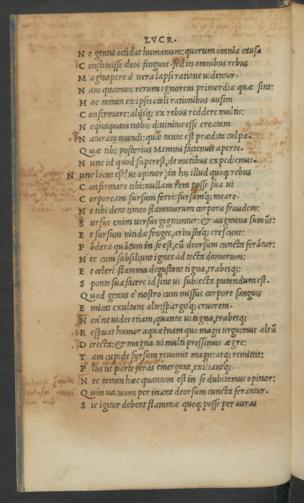 LVCR.
N e genus occidat humanum; quorum omnia causa
C onstituisse deos fingunt. sed in omnibus rebus
M agnopere a vera lapsi ratione videntur.
N am quamuis rerum ignorem primordia quae sint:
H oc tamen ex ipsis coeli rationibus ausim
C onfirmare: aliisq; ex rebus reddere multis:
N equaquam nobis diuinitus esse creatam
N aturam mundi: quae tanta est praedita culpa.
Q uae tibi posterius Memmi faciemus aperta.
N unc id quod superest, de motibus expediemus.
N unc locus est (ut opinor) in his illud quoq; rebus
C onfirmare tibi: nullam rem posse sua ui
C orpoream sursum ferri: sursumq; meare.
N e tibi dent in eo flammarum corpora fraudem:
S ursus enim uersus gignuntur: & augmina sumūt:
E t sursum nitidae fruges, arbustaq; crescunt:
P ōdera quātum in se est, cū deorsum cuncta ferātur:
N ec cum subsiliunt ignes ad tecta domorum:
E t celeri flamma degustant tigna, trabesq;:
S ponte sua facere id sine ui subiecta putandum est.
Q uod genus e nostro cum missus corpore sanguis
E micat exultans alte: spargitq; cruorem.
N onne uides etiam, quanta ui tigna, trabesq;
R espuat humor aquae? nam quo magis ursimus altū
D irecta: & magna ui multi pressimus aegre:
T am cupide sursum reuomit magis: atq; remittit:
P lus ut parte foras emergant, exiliantq;:
N ec tamen haec quantum est in se dubitamus opinor:
Q uin uacuum per inane deorsum cuncta ferantur.
S ic igitur debent flammae quoq; posse per auras